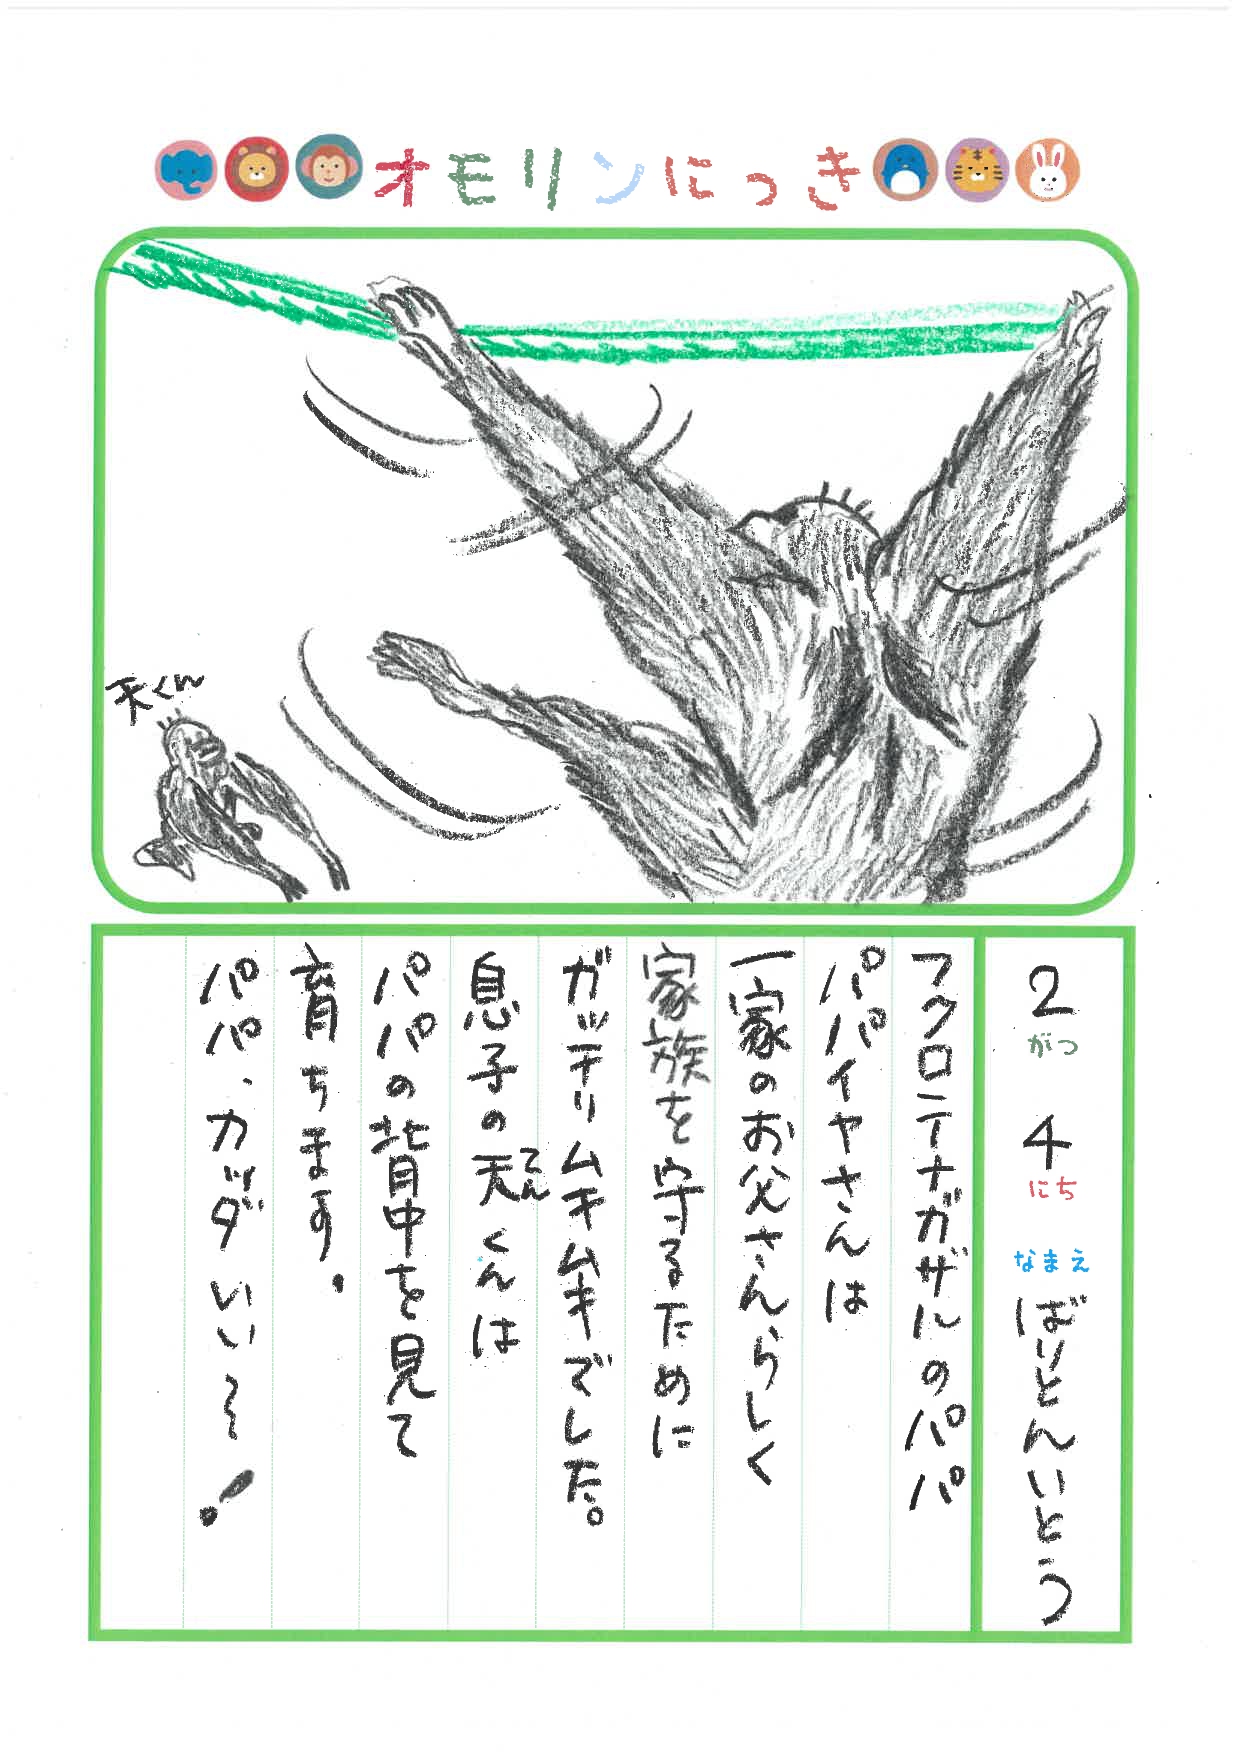 オモリンにっき
天くん
2がつ4にち なまえ ばりとんいとう
フクロテナガザルのパパ
パパイヤさんは
一家のお父さんらしく
家族を守るために
ガッチリムキムキでした。
息子の天くんは
てん
パパの背中を見て
育ちます。
パパ、カッダいい〜!